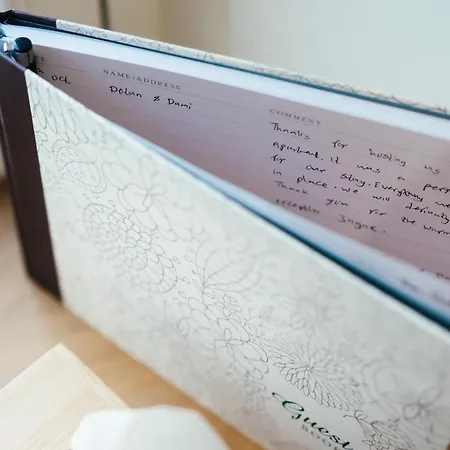 NAME/ADDRESS
COMMENT
oct
Dolan & Dami
Thanks for hosting us
apartment it was a
for our stay. Everything
in place. we will definitely
Thank you for the warm
reception Jayne.
Guest
BOOK